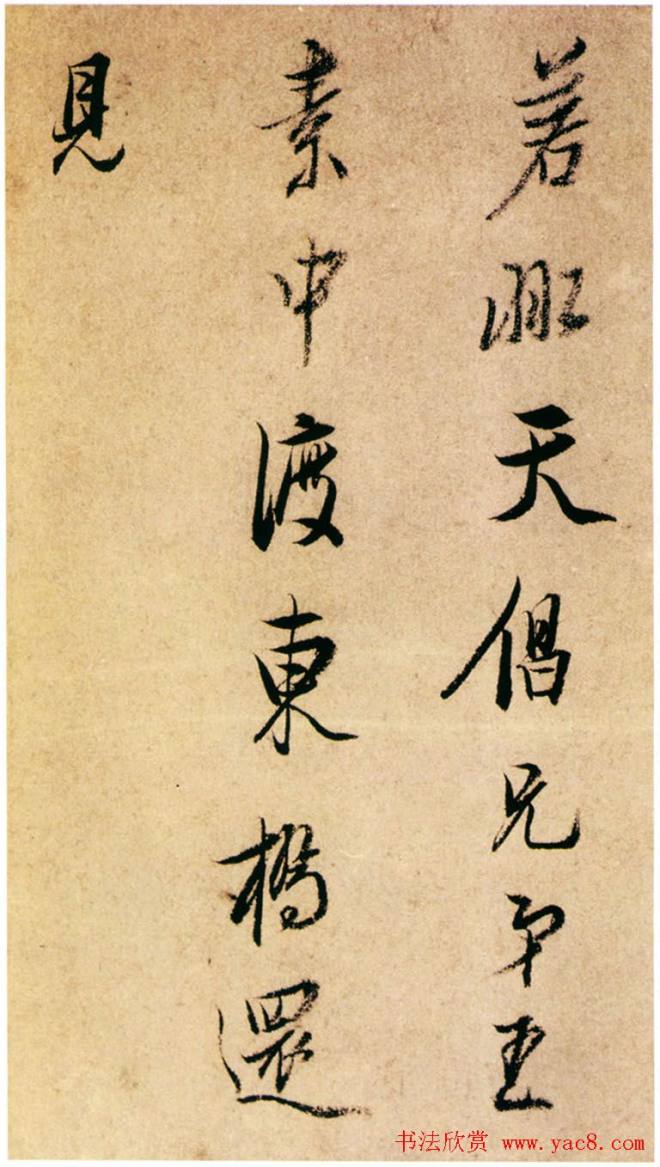 天倡兄弟
素中渡東橋還
見
书法欣赏 www.yac8.com